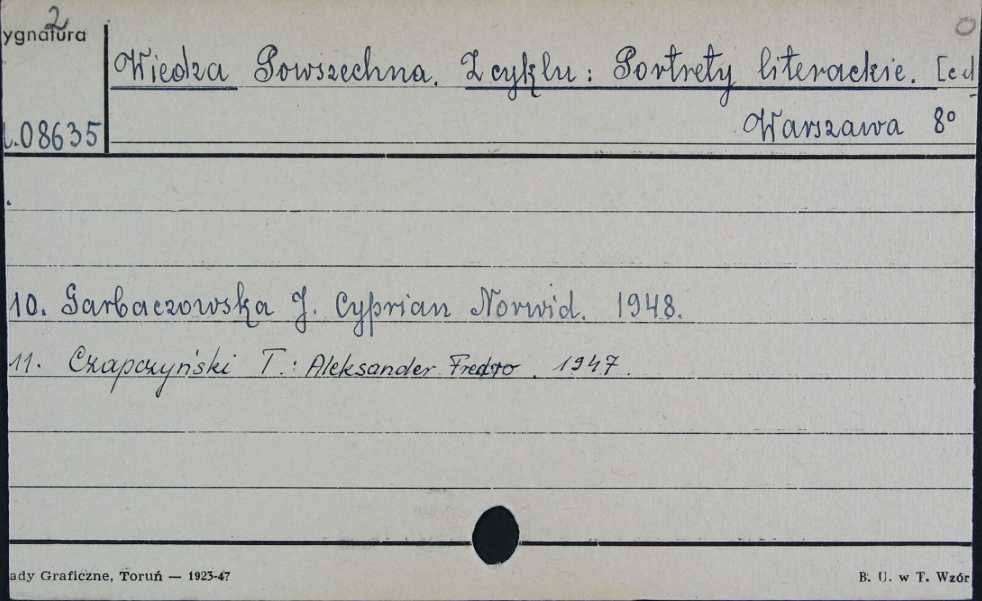 2
ygnatura
Wiedza Powszechna. Z cyklu: Portrety literackie. [cd
Warszawa 8°
08635
10. Garbaczowska J. Cyprian Norwid. 1948.
11. Czapczyński T.: Aleksander Fredro. 1947.
ady Graficzne, Toruń — 1923-47
B. U. w T. Wzór